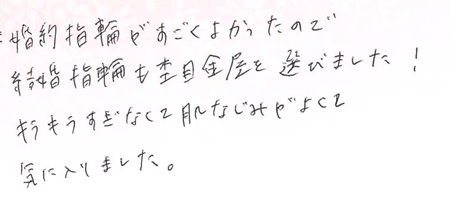 婚約指輪がすごくよかったので
結婚指輪も杢目金屋を選びました!
キラキラすぎなくて肌なじみがよくて
気に入りました。